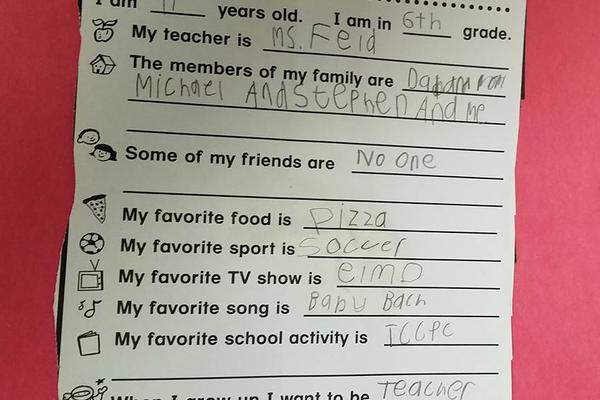 I am 11 years old. I am in 6th grade.
My teacher is Ms. Feld
The members of my family are
Michael And Stephen And me
Some of my friends are No One
My favorite food is pizza
My favorite sport is Soccer
My favorite TV show is elmo
My favorite song is Baby Bach
My favorite school activity is
When I grow up I want to be Teacher